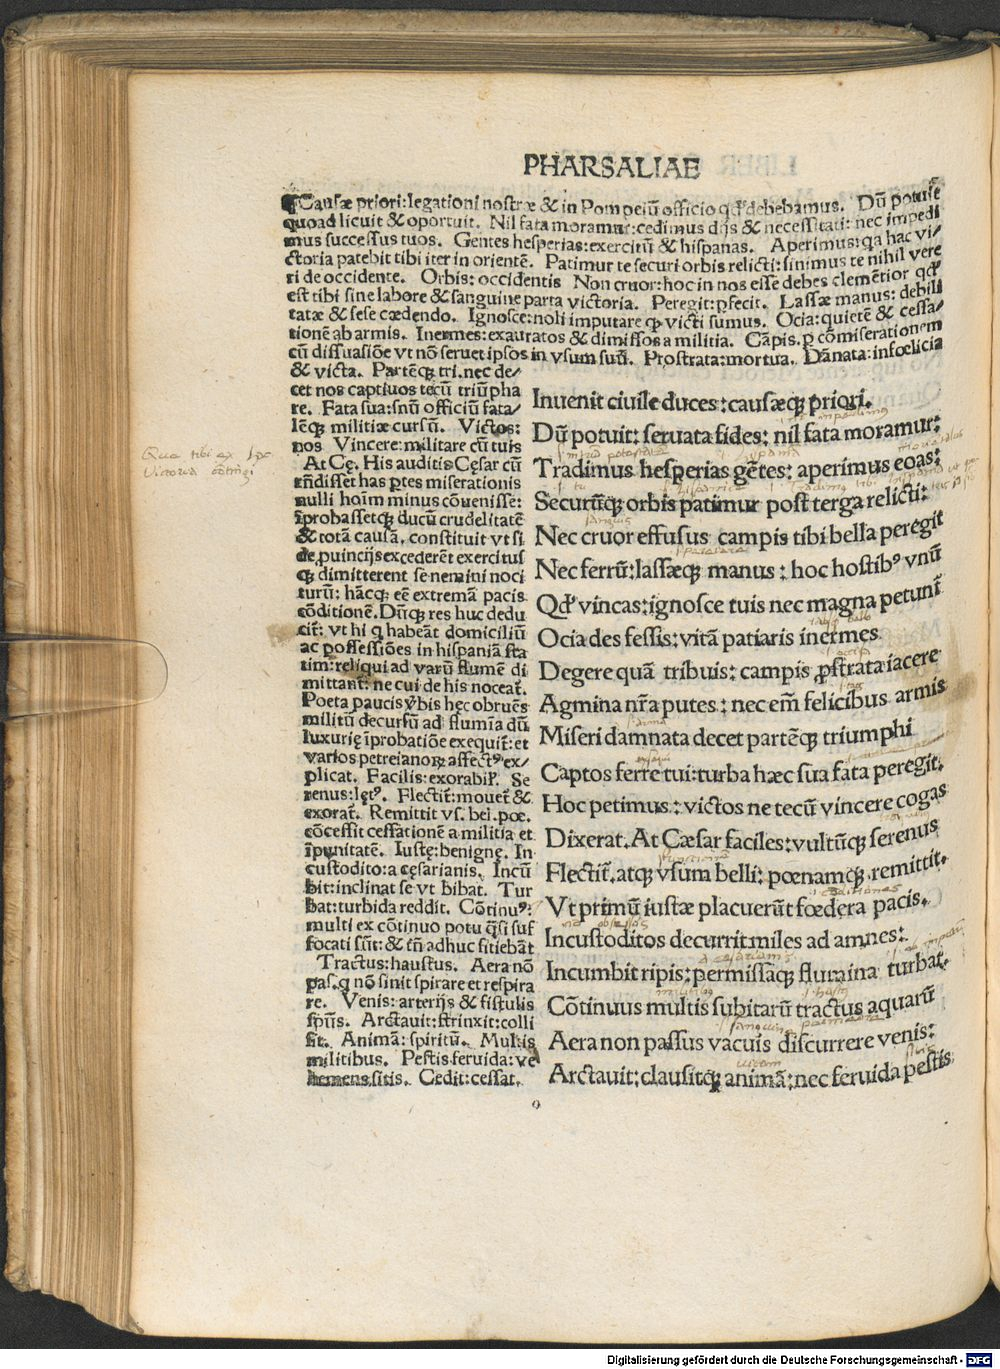 PHARSALIAE
Causæ priori: legationi nostræ & in Pompeiũ officio qđ debebamus. Dũ potuit
quoad licuit & oportuit. Nil fata moramur: cedimus dijs & necessitati: nec impedi
mus successus tuos. Gentes hesperias: exercitũ & hispanas. Aperimus: qa hac vi⸗
ctoria patebit tibi iter in orientẽ. Patimur te securi orbis relicti: sinimus te nihil vere
ri de occidente. Orbis: occidentis Non cruor: hoc in nos esse debes clemẽtior qđ
est tibi sine labore & sanguine parta victoria. Peregit: ꝑfecit. Lassæ manus: debili
tatæ & sese cædendo. Ignosce: noli imputare ꝙ victi sumus. Ocia: quietẽ & cessa⸗
tionẽ ab armis. Inermes: exauratos & dimissos a militia. Cãpis. ꝑ cõmiserationem
cũ dissuasiõe vt nõ seruet ipsos in vsum suũ. Prostrata: mortua. Dãnata: infœlicia
& victa. Partẽq; tri. nec de⸗
cet nos captiuos tecũ triũpha
re. Fata sua: snũ officiũ fata⸗
lẽq; militiæ cursũ. Victos:
nos Vincere: militare cũ tuis
At Cę. His auditis Cęsar cũ
tñ disset has ꝑtes miserationis
nulli hoim minus cõuenisse:
ĩprobassetq; ducũ crudelitatẽ
& totã causã, constituit vt si
de ꝓuincijs excederẽt exercitus
ꝙ dimitterent se nemini noci
turũ: hãcq; eẽ extremã pacis
cõditionẽ. Dũq; res huc dedu
cit̃: vt hi q habeãt domiciliũ
ac possessiões in hispaniã sta
tim: reliqui ad varũ flumẽ di
mittant̃: ne cui de his noceat̃.
Poeta paucis ṽbis hęc obruẽs
militũ decursũ ad flumĩa dũ
luxurię ĩprobatiõe exequit̃: et
varios petreianoꝝ affectꝰ ex⸗
plicat. Facilis: exorabil'. Se
renus: lętꝰ. Flectit̃: mouet̃ &
exorat̃. Remittit vs. bel. pœ.
cõcessit cessationẽ a militia et
ĩpunitatẽ. Iustę: benignę. In
custodito: a cęsarianis. Incũ
bit: inclinat se vt bibat. Tur
bat: turbida reddit. Cõtinuꝰ:
multi ex cõtinuo potu q̃si suf
focati sũt: & tñ adhuc sitiebãt
Tractus: haustus. Aera nõ
pas. q nõ sinit spirare et respira
re. Venis: arterijs & fistulis
spũs. Arctauit: strinxit: colli
sit. Animã: spiritũ. Multis
militibus. Pestis feruida: ve
hemens sitis. Cedit: cessat.
Inuenit ciuile duces: causæq; priori.
Dũ potuit: seruata fides: nil fata moramur:
Tradimus hesperias gẽtes: aperimus eoas:
Securũq; orbis patimur post terga relicti:
Nec cruor effusus campis tibi bella peregit
Nec ferrũ: lassæq; manus: hoc hostibꝰ vnũ
Qđ vincas: ignosce tuis nec magna petunt̃
Ocia des fessis: vitã patiaris inermes
Degere quã tribuis: campis ꝓstrata iacere
Agmina nr̃a putes: nec em̃ felicibus armis
Miseri damnata decet partẽq; triumphi
Captos ferre tui: turba hæc sua fata peregit.
Hoc petimus: victos ne tecũ vincere cogas
Dixerat. At Cæsar faciles: vultũq; serenus
Flectit̃. atq; vsum belli: pœnamq; remittit.
Vt primũ iustæ placuerũt fœdera pacis.
Incustoditos decurrit miles ad amnes:
Incumbit ripis: permissãq; flumina turbat.
Cõtinuus multis subitarũ tractus aquarũ
Aera non passus vacuis discurrere venis:
Arctauit: clausitq; animã: nec feruida pestis
Que tibi ex
Victoria cõtingi
Digitalisierung gefördert durch die Deutsche Forschungsgemeinschaft - DFG